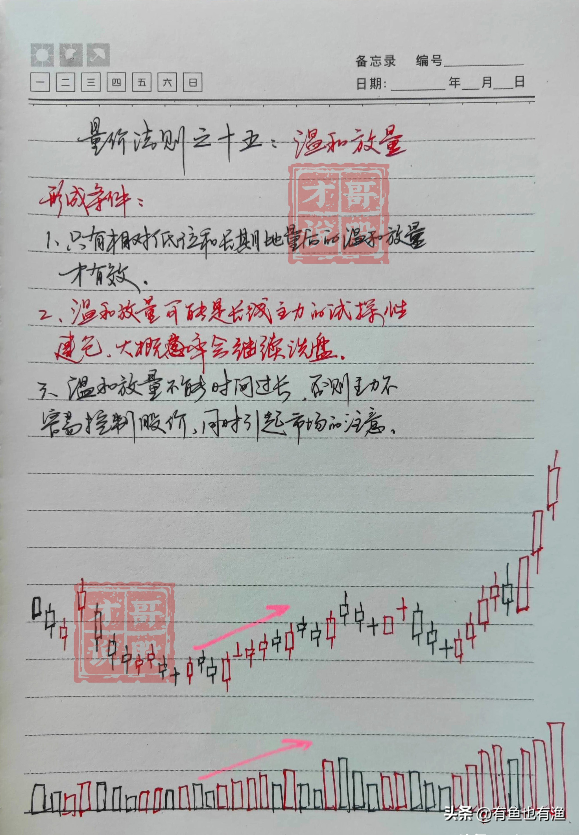 备忘录 编号
一 二 三 四 五 六 日
日期: 年 月 日
量价法则之十五：温和放量
形成条件：
1、只有相对低位和长期地量后的温和放量
才有效.
2、温和放量可能是长线主力的试探性
建仓、大概意味会继续洗盘.
三、温和放量不能时间过长，否则主力不
容易控制股价，同时引起市场的注意.
才哥
说股
才哥
说股
头条 @有鱼也有渔